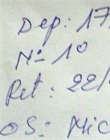 Dep: 17
Nº 10
Ret: 22/
OS: Mic